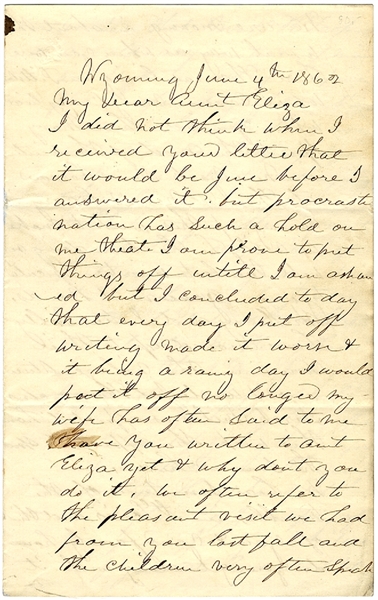 Wyoming June 4th 1862
My Dear Aunt Eliza
I did not think when I
received your letter that
it would be June before I
answered it. but procrasti
nation has such a hold on
me that I am prone to put
things off untill I am asham
ed but I concluded to day
that every day I put off
writing made it worse &
it being a rainy day I would
poot it off no longer my
wife has often said to me
have you written to aunt
Eliza yet & why dont you
do it. we often refer to
the pleasant visit we had
from you last fall and
the children very often speak